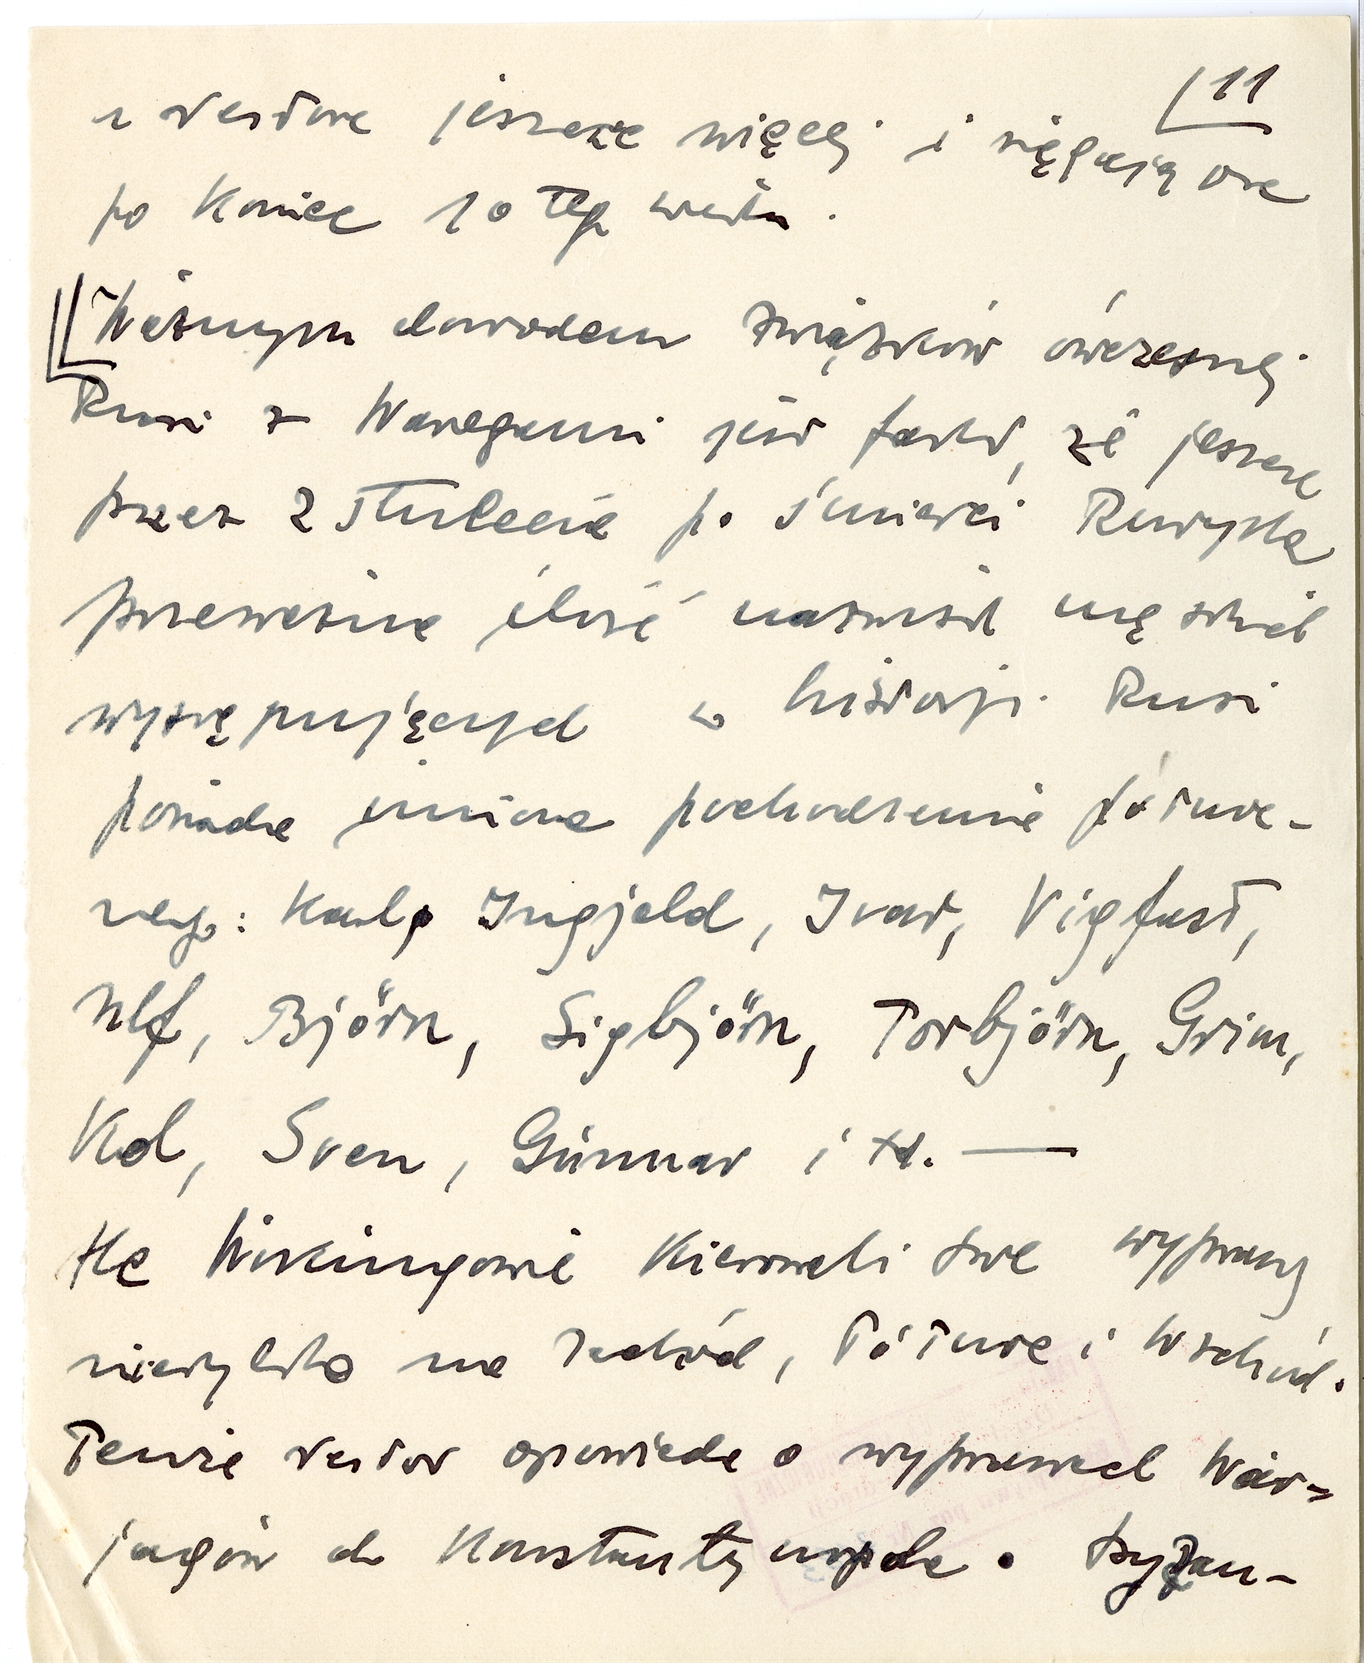 11
u Nestora jeszcze więcej i sięgają one
po koniec 10tego wieku.
Ważnym dowodem związków ówczesnej
Rusi z Waregami jest fakt, że jeszcze
przez 2 stulecia po śmierci Ruryka
przeważna ilość nazwisk męskich
występujących w historji Rusi
posiada imiona pochodzenia północ-
nego: Karl, Ingjald, Ivar, Vigfast,
Ulf, Björn, Sigbjörn, Torbjörn, Grim,
Kol, Sven, Gunnar i td. —
Ale Wikingowie kierowali swe wyprawy
nietylko na zachód, północ i wschód.
Tenże Nestor opowiada o wyprawach War-
jagów do Konstantynopola. Byzan-